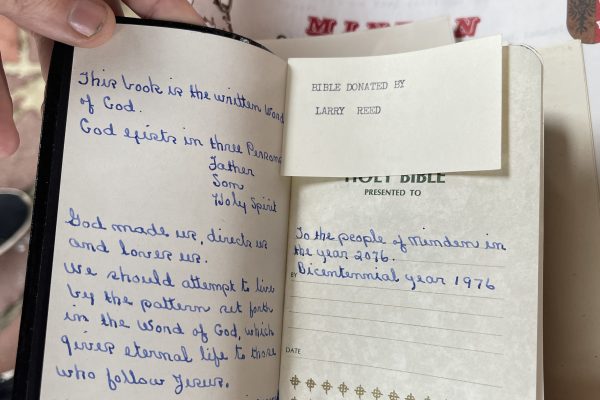 MINDEN
This book is the written Word
of God.
God exists in three Persons
Father
Son
Holy Spirit
God made us, directs us
and loves us.
We should attempt to live
by the pattern set forth
in the Word of God, which
gives eternal life to those
who follow Jesus.
BIBLE DONATED BY
LARRY REED
HOLY BIBLE
PRESENTED TO
To the people of Minden in
the year 2076.
BY Bicentennial year 1976
DATE